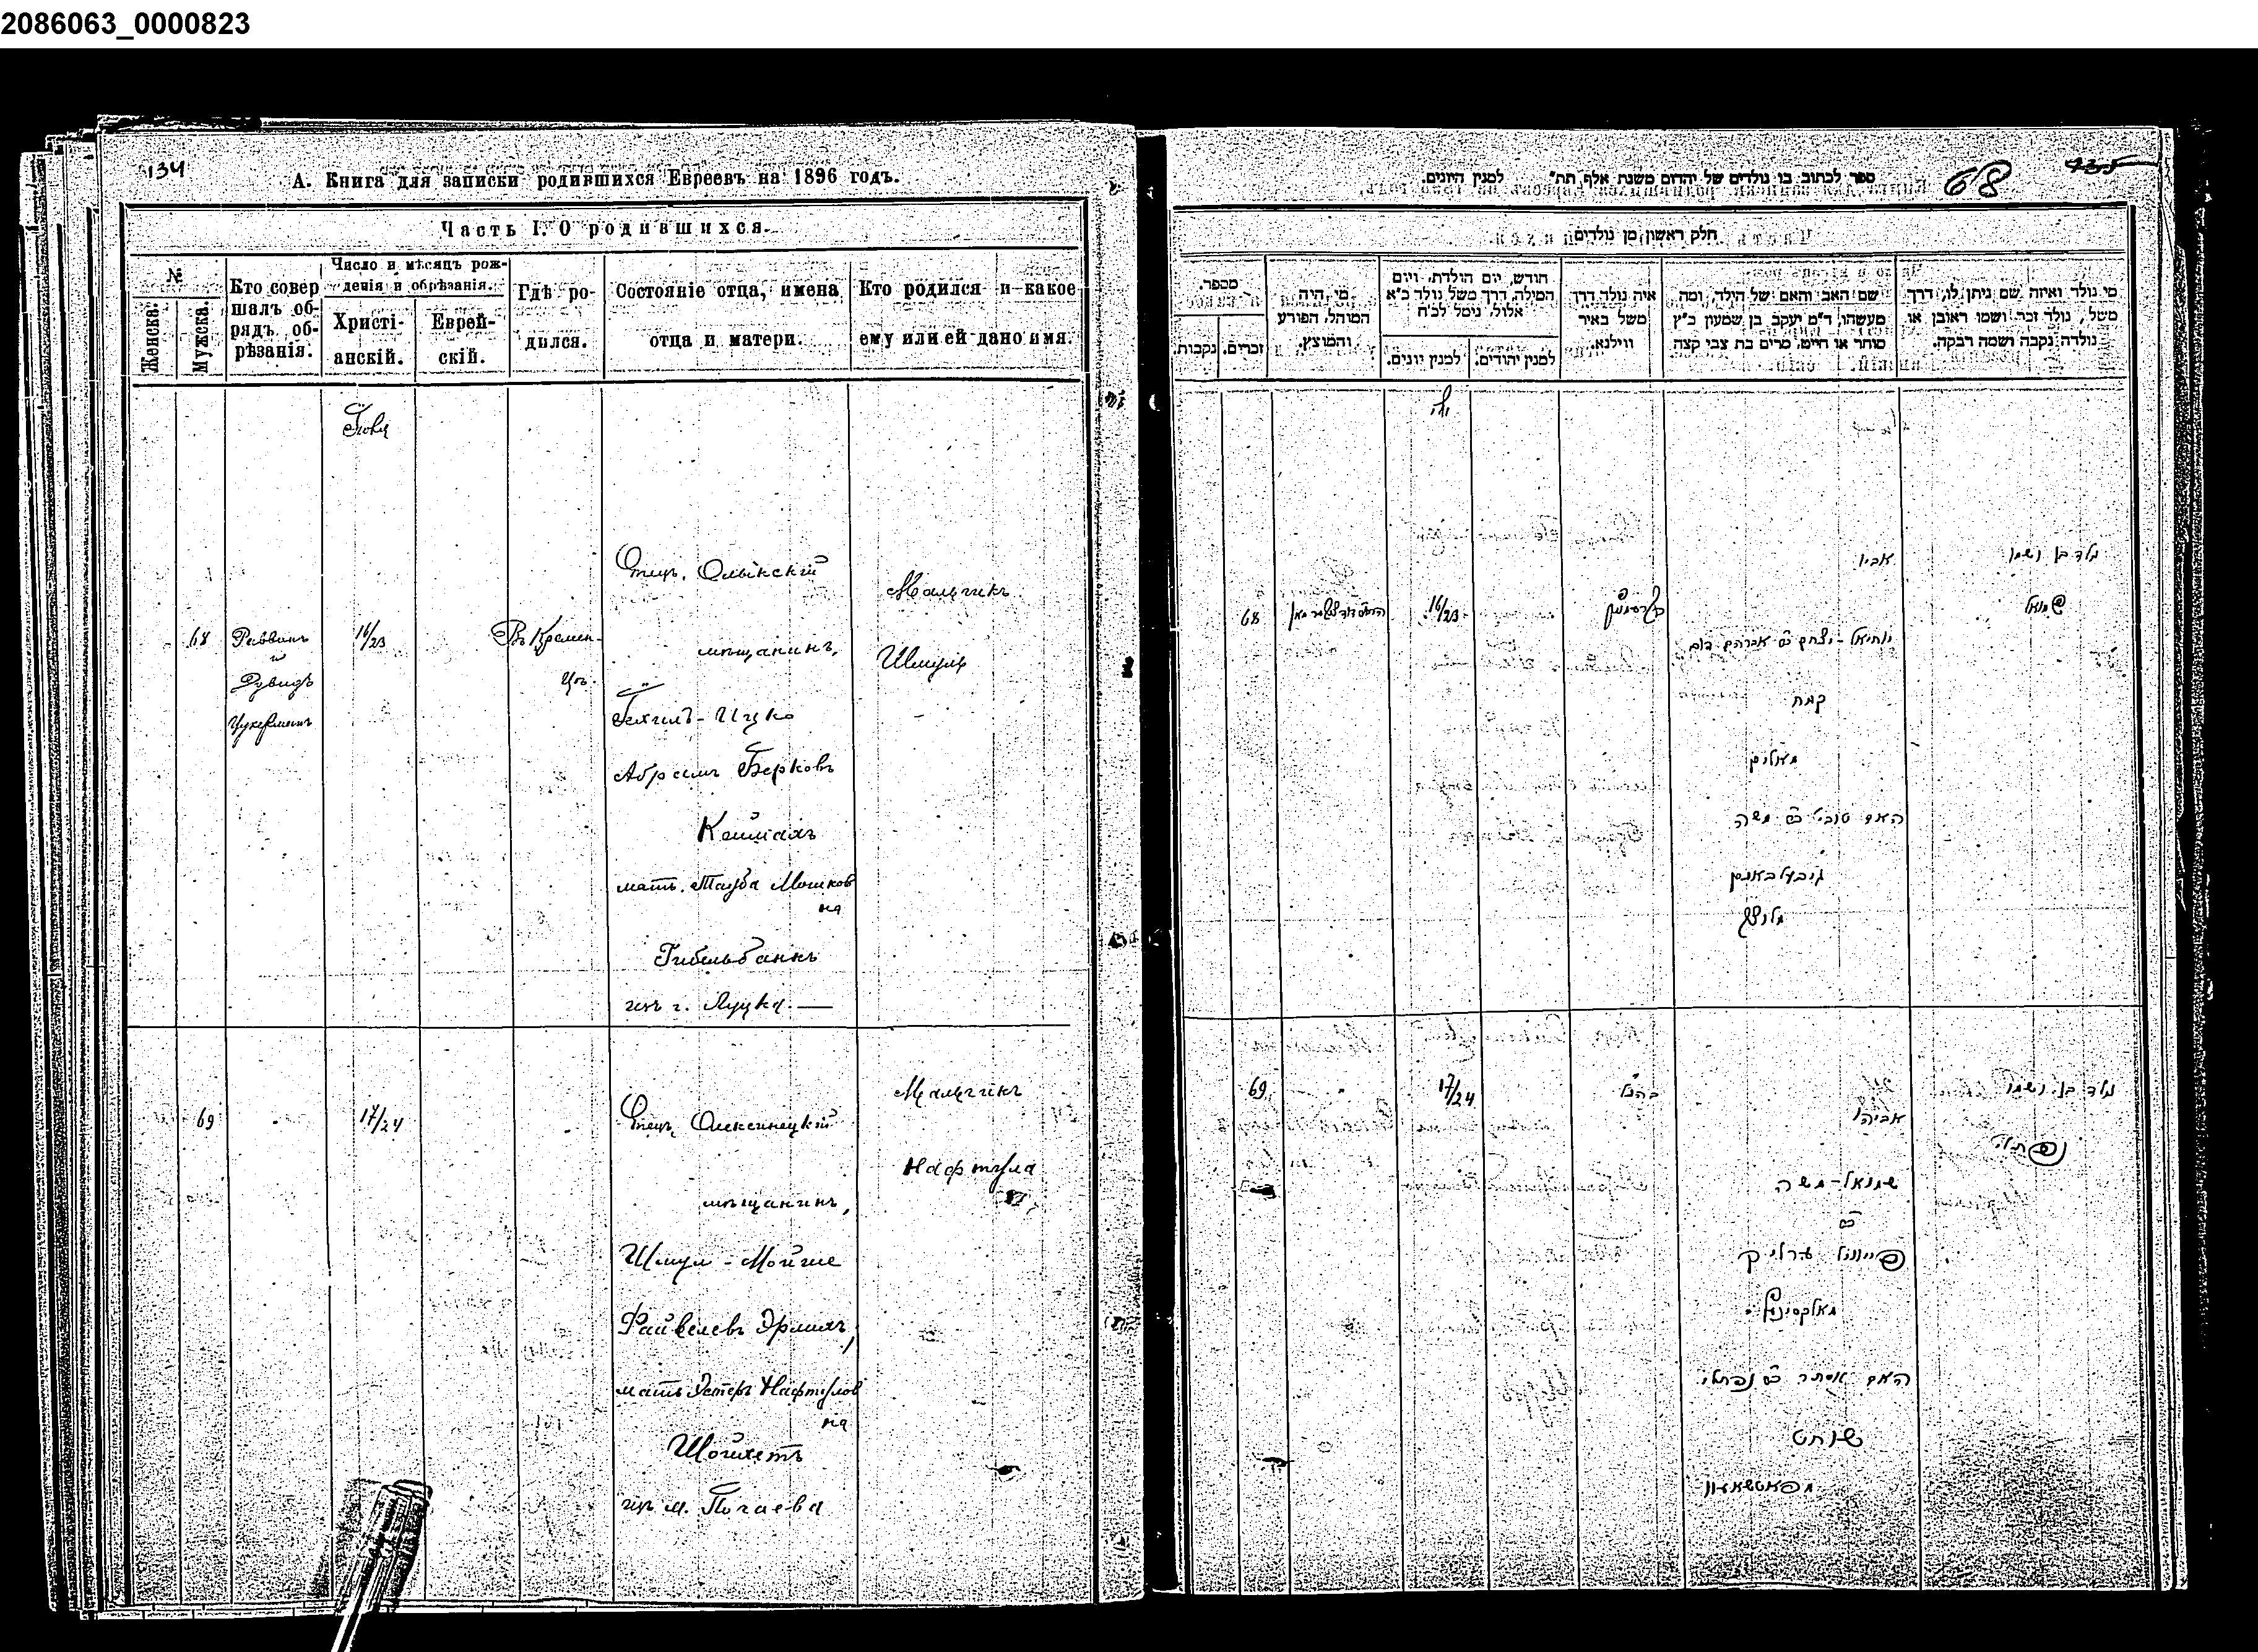 2086063_0000823
134
А. Книга для записки родившихся Евреевъ на 1896 годъ.
Часть I. О родившихся.
№
Женска.
Мужска.
Кто совер
шалъ об-
рядъ об-
рѣзанія.
Число и мѣсяцъ рож-
денія и обрѣзанія.
Христі-
анскій.
Еврей-
скій.
Гдѣ ро-
дился.
Состояніе отца, имена
отца и матери.
Кто родился и какое
ему или ей дано имя.
68
Раввинъ
и
Дувидъ
Цукерманъ
16/23
Въ Кремен-
цѣ.
Отецъ, Олыкскій
мѣщанинъ,
Іехилъ-Ицко
Абрамъ Берковъ
Кеймахъ
мать, Тауба Мошков
на
Гибельбанкъ
изъ г. Луцка
Мальчикъ
Шмуль
69
17/24
Отецъ, Олексинецкій
мѣщанинъ,
Шмул-Мойше
Файвелевъ Эрлихъ,
мать Эстеръ Нафтулов
на
Шойхетъ
изъ м. Почаева
Мальчикъ
Нафтула
ספר לכתוב בו נולדים של יהדום משנת אלף תת" למנין היונים.
68
135
חלק ראשון מן נולדים
מספר.
נקבות.
זכרים.
מי היה
המוהל, הפורע
והמוצץ.
חודש, יום הולדת, ויום
המילה, דרך משל נולד כ"א
אלול, נימל לכ"ח
למנין יונים.
למנין יהודים.
איה נולד דרך
משל באיר
ווילנא.
שם האב והאם של הילד, ומה
מעשהו, ד"מ יעקב בן שמעון כ"ץ
סוחר או חייט, מרים בת צבי קצה
מי נולד ואיזה שם ניתן לו, דרך
משל, נולד זכר ושמו ראובן או
נולדה נקבה ושמה רבקה.
יולי
68
16/23
אביו
יחיאל-יצחק ב"ר אברהם דוב
קמח
האם טויבא ב"ר משה
נולד בן ושמו
שמואל
69
17/24
כהנ"ל
אביהו
שמואל-משה
ב"ר
פייוויל ערליך
האם אסתר ב"ר נפתלי
שוחט
נולד בן ושמו
נפתלי